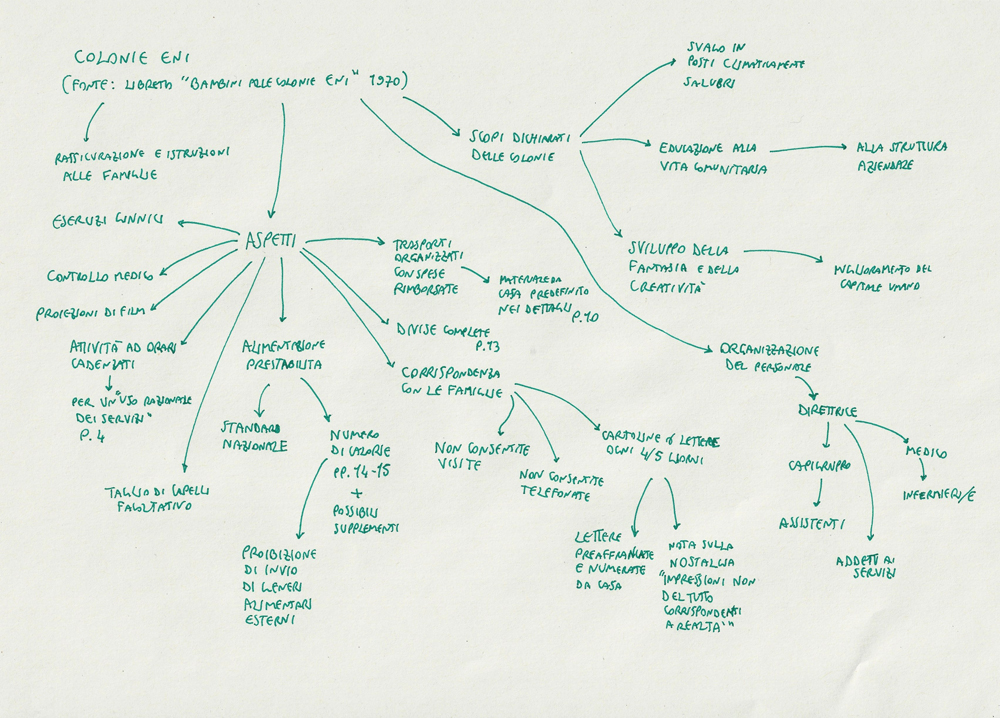 COLONIE ENI
(FONTE: LIBRETTO "BAMBINI ALLE COLONIE ENI" 1970)
RASSICURAZIONE E ISTRUZIONI
ALLE FAMIGLIE
SCOPI DICHIARATI
DELLE COLONIE
SVAGO IN
POSTI CLIMATICAMENTE
SALUBRI
EDUCAZIONE ALLA
VITA COMUNITARIA
ALLA STRUTTURA
AZIENDALE
SVILUPPO DELLA
FANTASIA E DELLA
CREATIVITÀ
MIGLIORAMENTO DEL
CAPITALE UMANO
ASPETTI
ESERCIZI GINNICI
CONTROLLO MEDICO
PROIEZIONI DI FILM
ATTIVITÀ AD ORARI
CADENZATI
PER UN "USO RAZIONALE
DEI SERVIZI"
P. 4
TAGLIO DI CAPELLI
FACOLTATIVO
ALIMENTAZIONE
PRESTABILITA
STANDARD
NAZIONALE
NUMERO
DI CALORIE
PP. 14-15
+
POSSIBILI
SUPPLEMENTI
PROIBIZIONE
DI INVIO
DI GENERI
ALIMENTARI
ESTERNI
TRASPORTI
ORGANIZZATI
CON SPESE
RIMBORSATE
MATERIALE DA
CASA PREDEFINITO
NEI DETTAGLI
P. 10
DIVISE COMPLETE
P. 13
CORRISPONDENZA
CON LE FAMIGLIE
NON CONSENTITE
VISITE
NON CONSENTITE
TELEFONATE
CARTOLINE O LETTERE
OGNI 4/5 GIORNI
LETTERE
PREAFFRANCATE
E NUMERATE
DA CASA
NOTA SULLA
NOSTALGIA
"IMPRESSIONI NON
DEL TUTTO
CORRISPONDENTI
A REALTÀ"
ORGANIZZAZIONE
DEL PERSONALE
DIRETTRICE
CAPIGRUPPO
ASSISTENTI
ADDETTI AI
SERVIZI
MEDICO
INFERMIERI/E